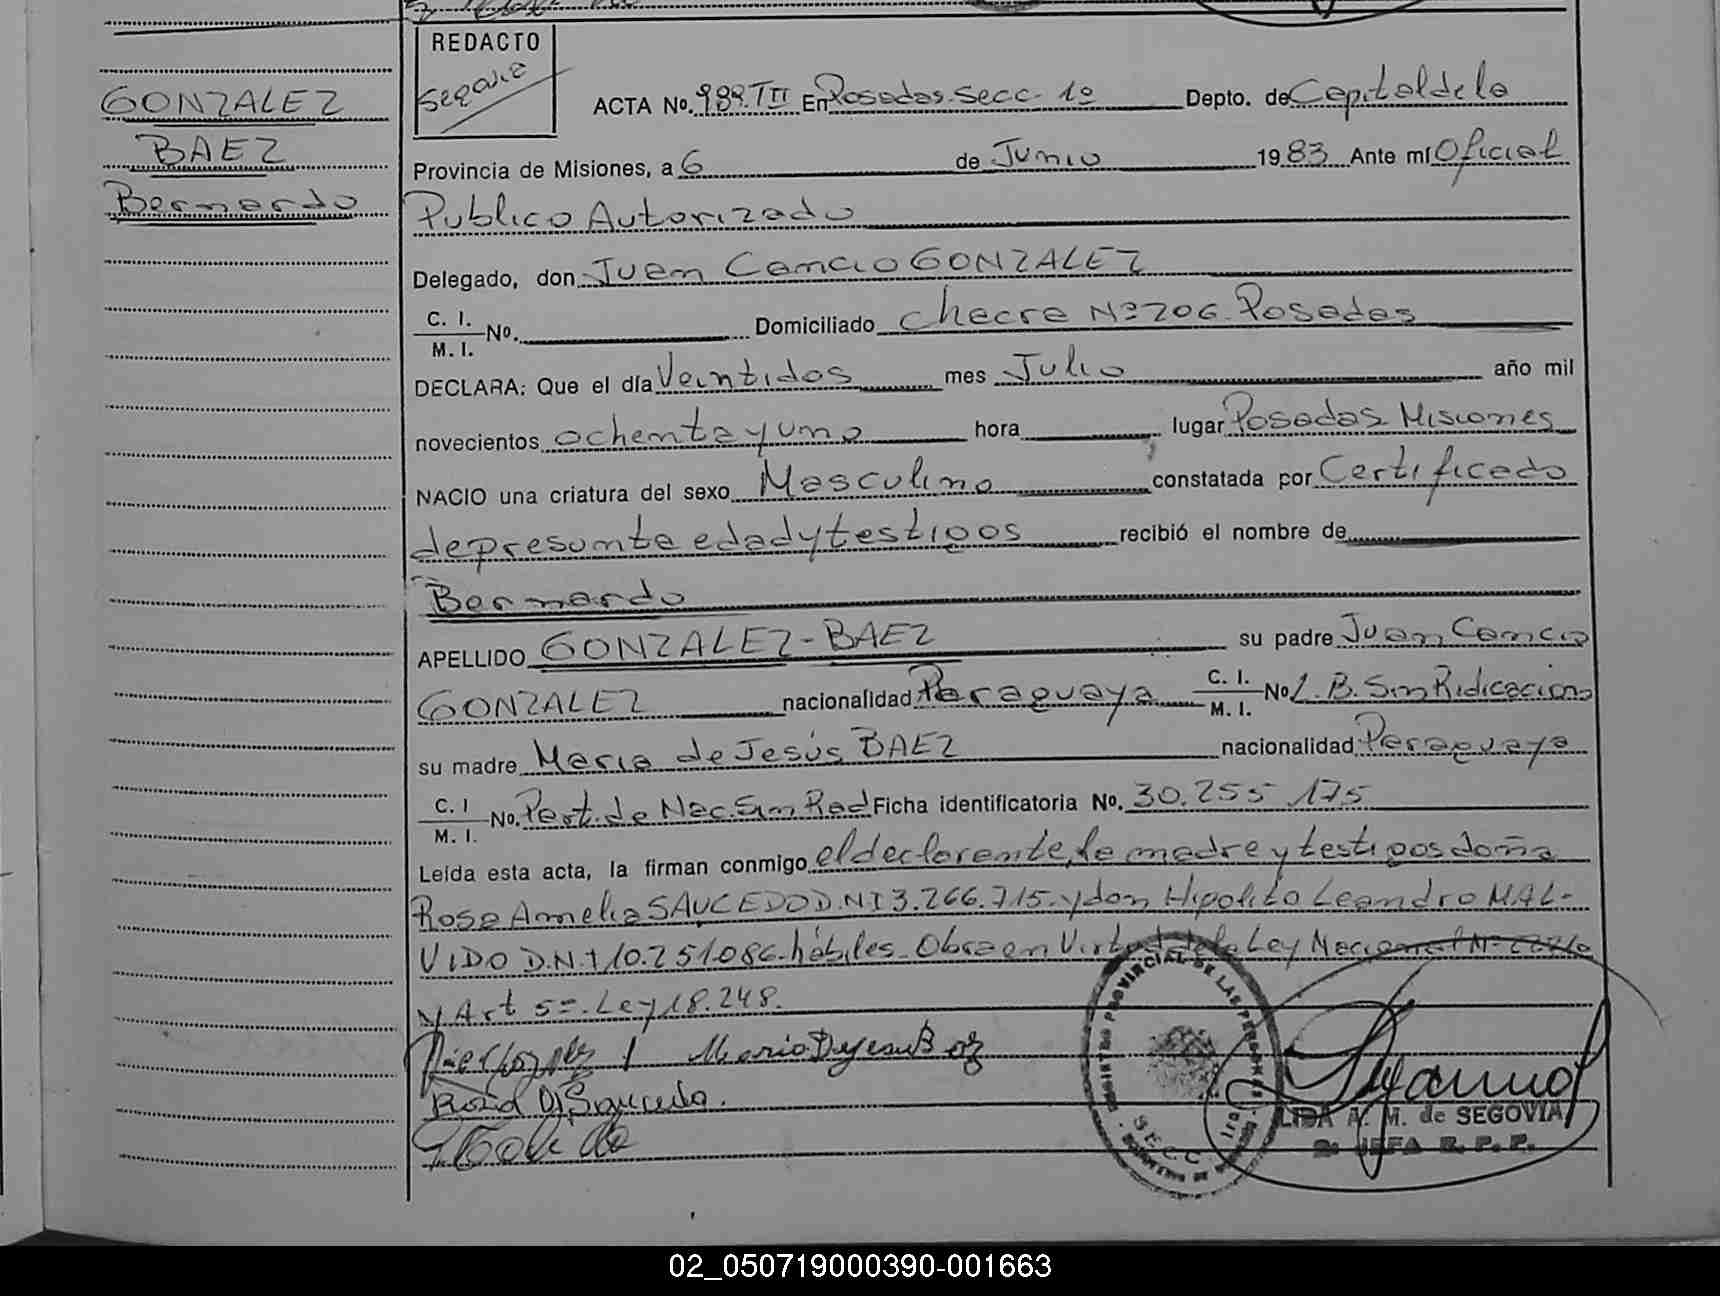 REDACTO
GONZALEZ
BAEZ
Bernardo
ACTA No. 989.TIII En Posadas. Secc. 1º Depto. de Capital de la
Provincia de Misiones, a 6 de Junio 1983 Ante mí Oficial
Publico Autorizado
Delegado, don Juan Cancio GONZALEZ
C. I.
M. I. No. Domiciliado Chacra Nº 206. Posadas
DECLARA: Que el día Veintidos mes Julio año mil
novecientos ochenta y uno hora lugar Posadas Misiones
NACIO una criatura del sexo Masculino constatada por Certificado
de presunta edad y testigos recibió el nombre de
Bernardo
APELLIDO GONZALEZ - BAEZ su padre Juan Cancio
GONZALEZ nacionalidad Paraguaya C. I. M. I. No L. B. Sin Radicacion
su madre Maria de Jesús BAEZ nacionalidad Paraguaya
C. I M. I. No. Part. de Nac. Sin Rad Ficha identificatoria No. 30.255 175
Leída esta acta, la firman conmigo el declarante, la madre y testigos doña
Rosa Amelia SAUCEDO D.N.I 3.266.715. y don Hipolito Leandro MAL-
VIDO D.N.I 10.251.086. hábiles. Obra en Virtud de la Ley Nacional Nº
y Art 5=. Ley 18.248.
REGISTRO PROVINCIAL DE LAS PERSONAS
SECC.
LIDA A. M. de SEGOVIA
2a JEFA R. P. P.
02_050719000390-001663